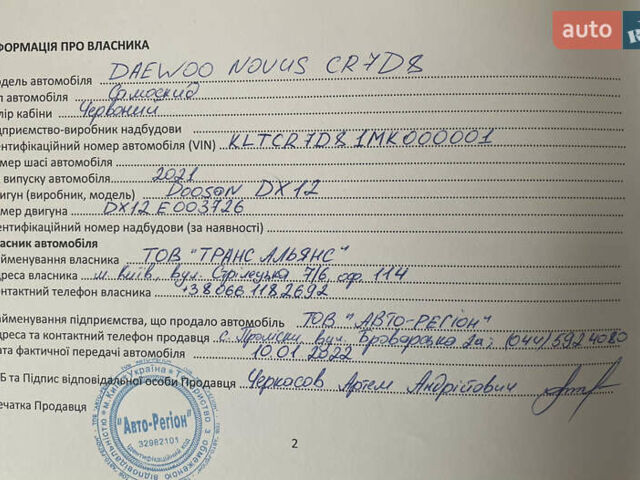 auto
R
ФОРМАЦІЯ ПРО ВЛАСНИКА
одель автомобіля DAEWOO NOVUS CR7D8
п автомобіля Самоскид
лір кабіни Червоний
ідприємство-виробник надбудови
ентифікаційний номер автомобіля (VIN) KLTCR7D81MK000001
омер шасі автомобіля
к випуску автомобіля 2021
вигун (виробник, модель) DOOSAN DX12
омер двигуна DX12E003726
ентифікаційний номер надбудови (за наявності)
ласник автомобіля
айменування власника ТОВ "ТРАНС АЛЬЯНС"
дреса власника м. Київ, вул. Стрілецька 7/6 оф. 114
онтактний телефон власника +38 066 118 2692
айменування підприємства, що продало автомобіль ТОВ "АВТО-РЕГІОН"
дреса та контактний телефон продавця с. Проліски вул. Броварська 2а; (044) 592 4080
ата фактичної передачі автомобіля 10.01.2022
ІБ та Підпис відповідальної особи Продавця Черкасов Артем Андрійович
ечатка Продавця
"Авто-Регіон"
32982101
ідентифікаційний код
2